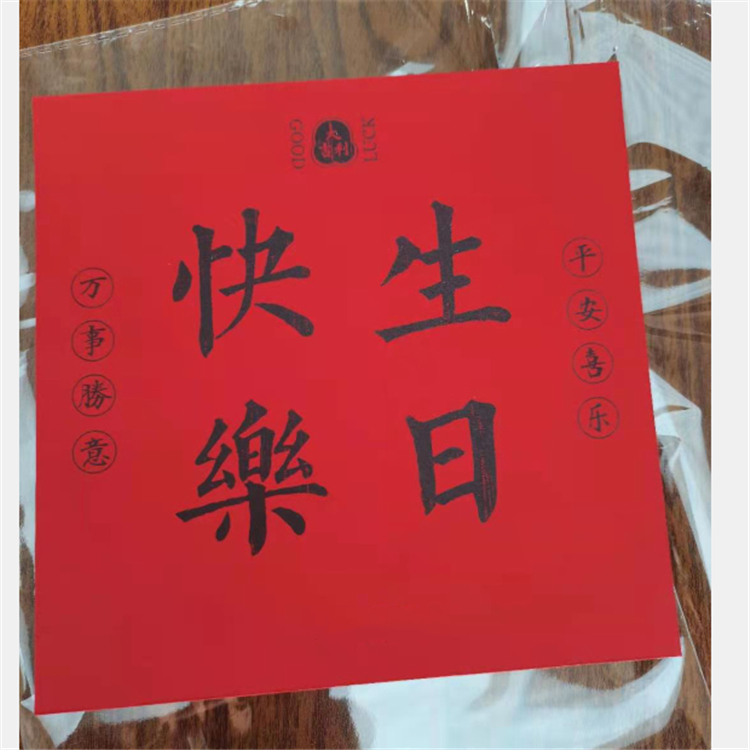 GOOD
大吉利
LUCK
平安喜乐
生日
快樂
万事勝意